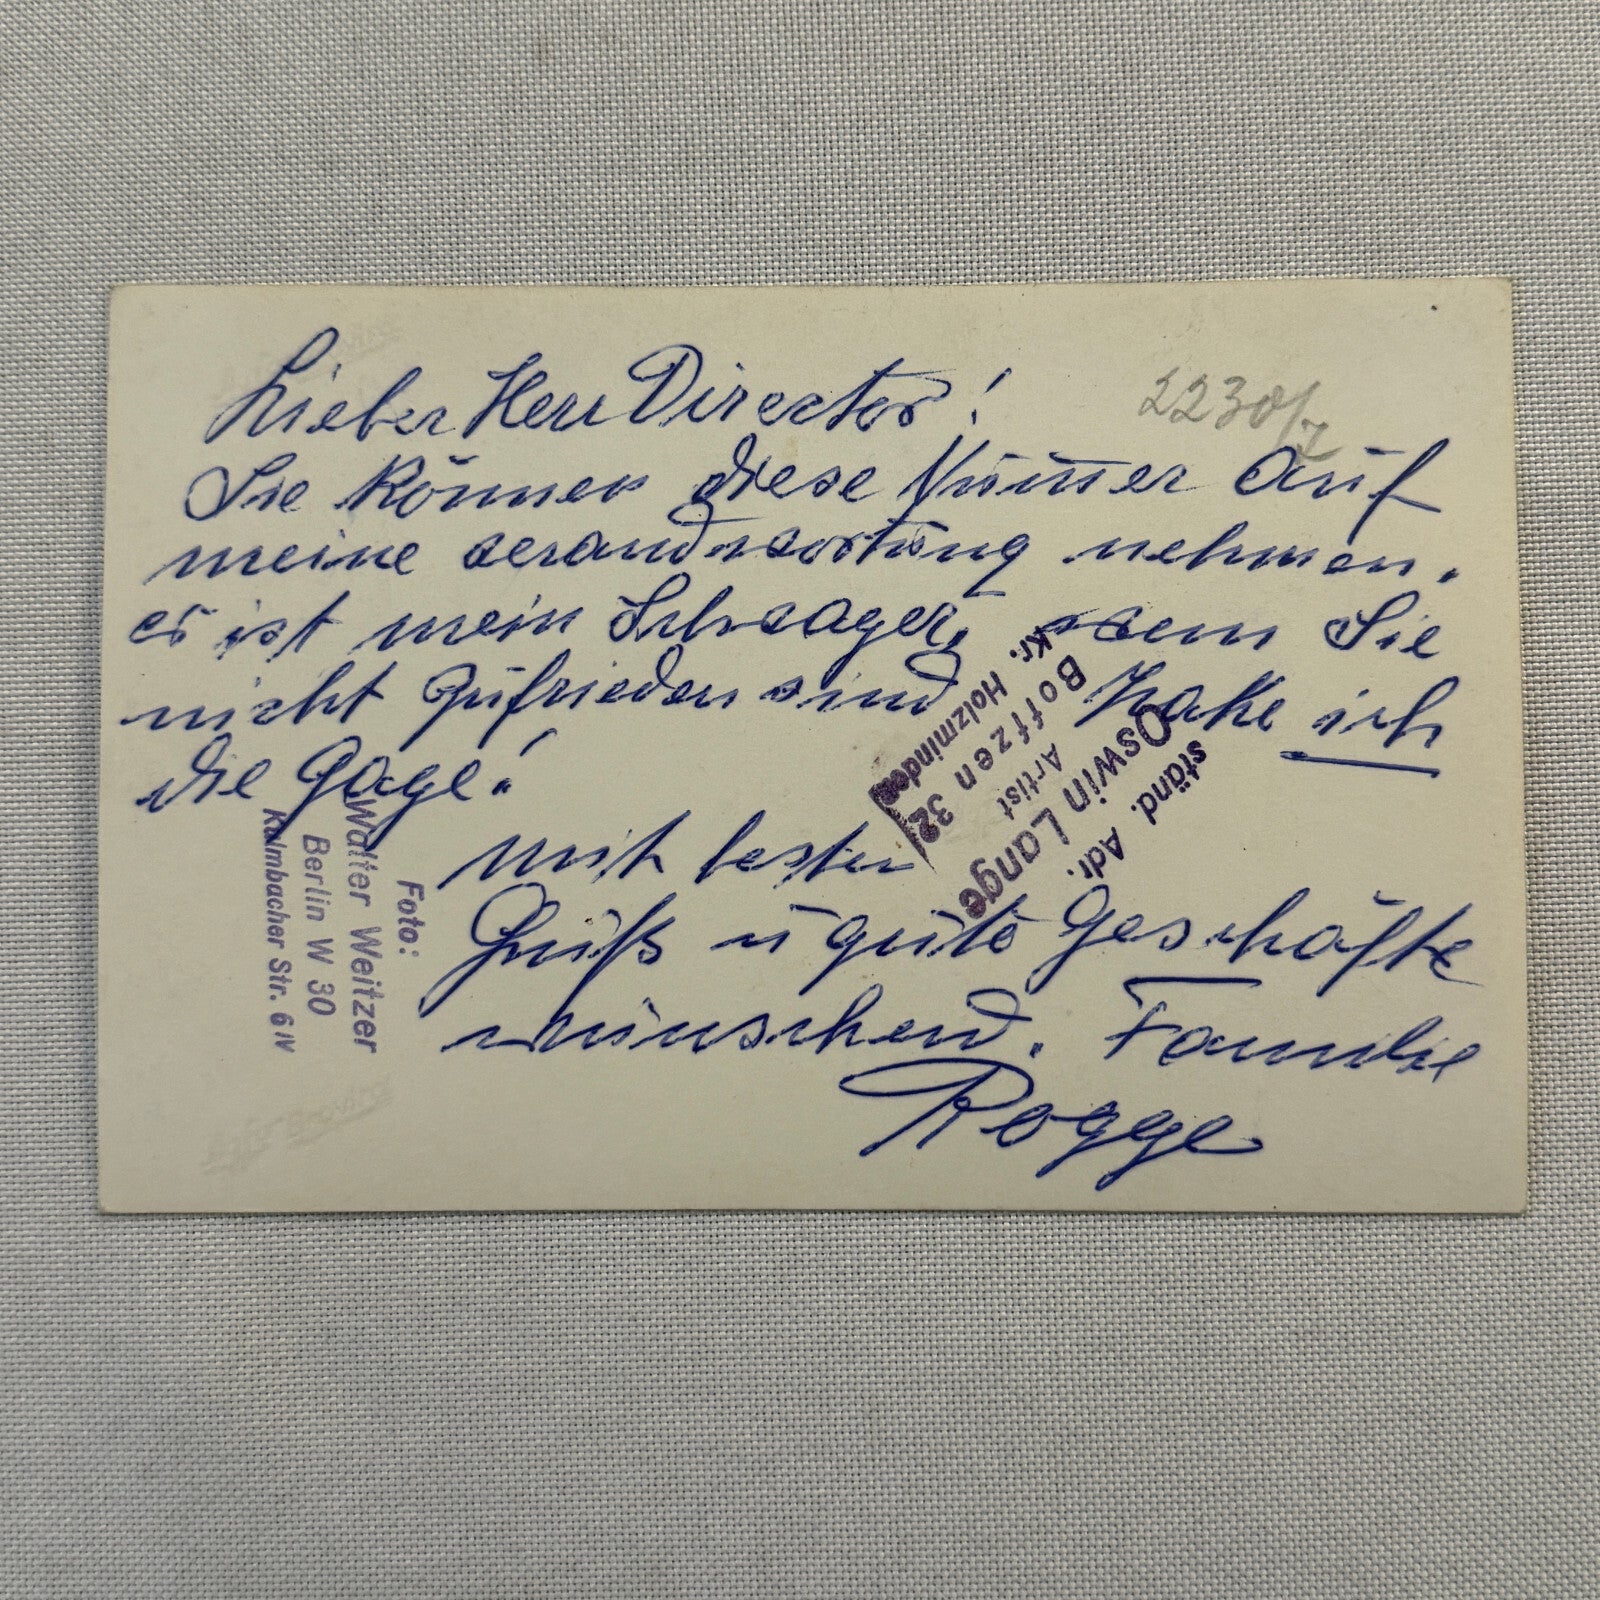 Lieber Herr Director!
2230/7
Sie können diese Num̄er auf
meine verandwortung nehmen.
es ist mein Schwager, wenn Sie
nicht zufrieden sind zahle ich
die Gage!
mit besten
Gruß u gute Geschäfte
wünschend. Familie
Rogge
Foto:
Walter Weitzer
Berlin W 30
Kulmbacher Str. 6 IV
ständ. Adr.
Oswin Lange
Artist
Boffzen 32
Kr. Holzminden